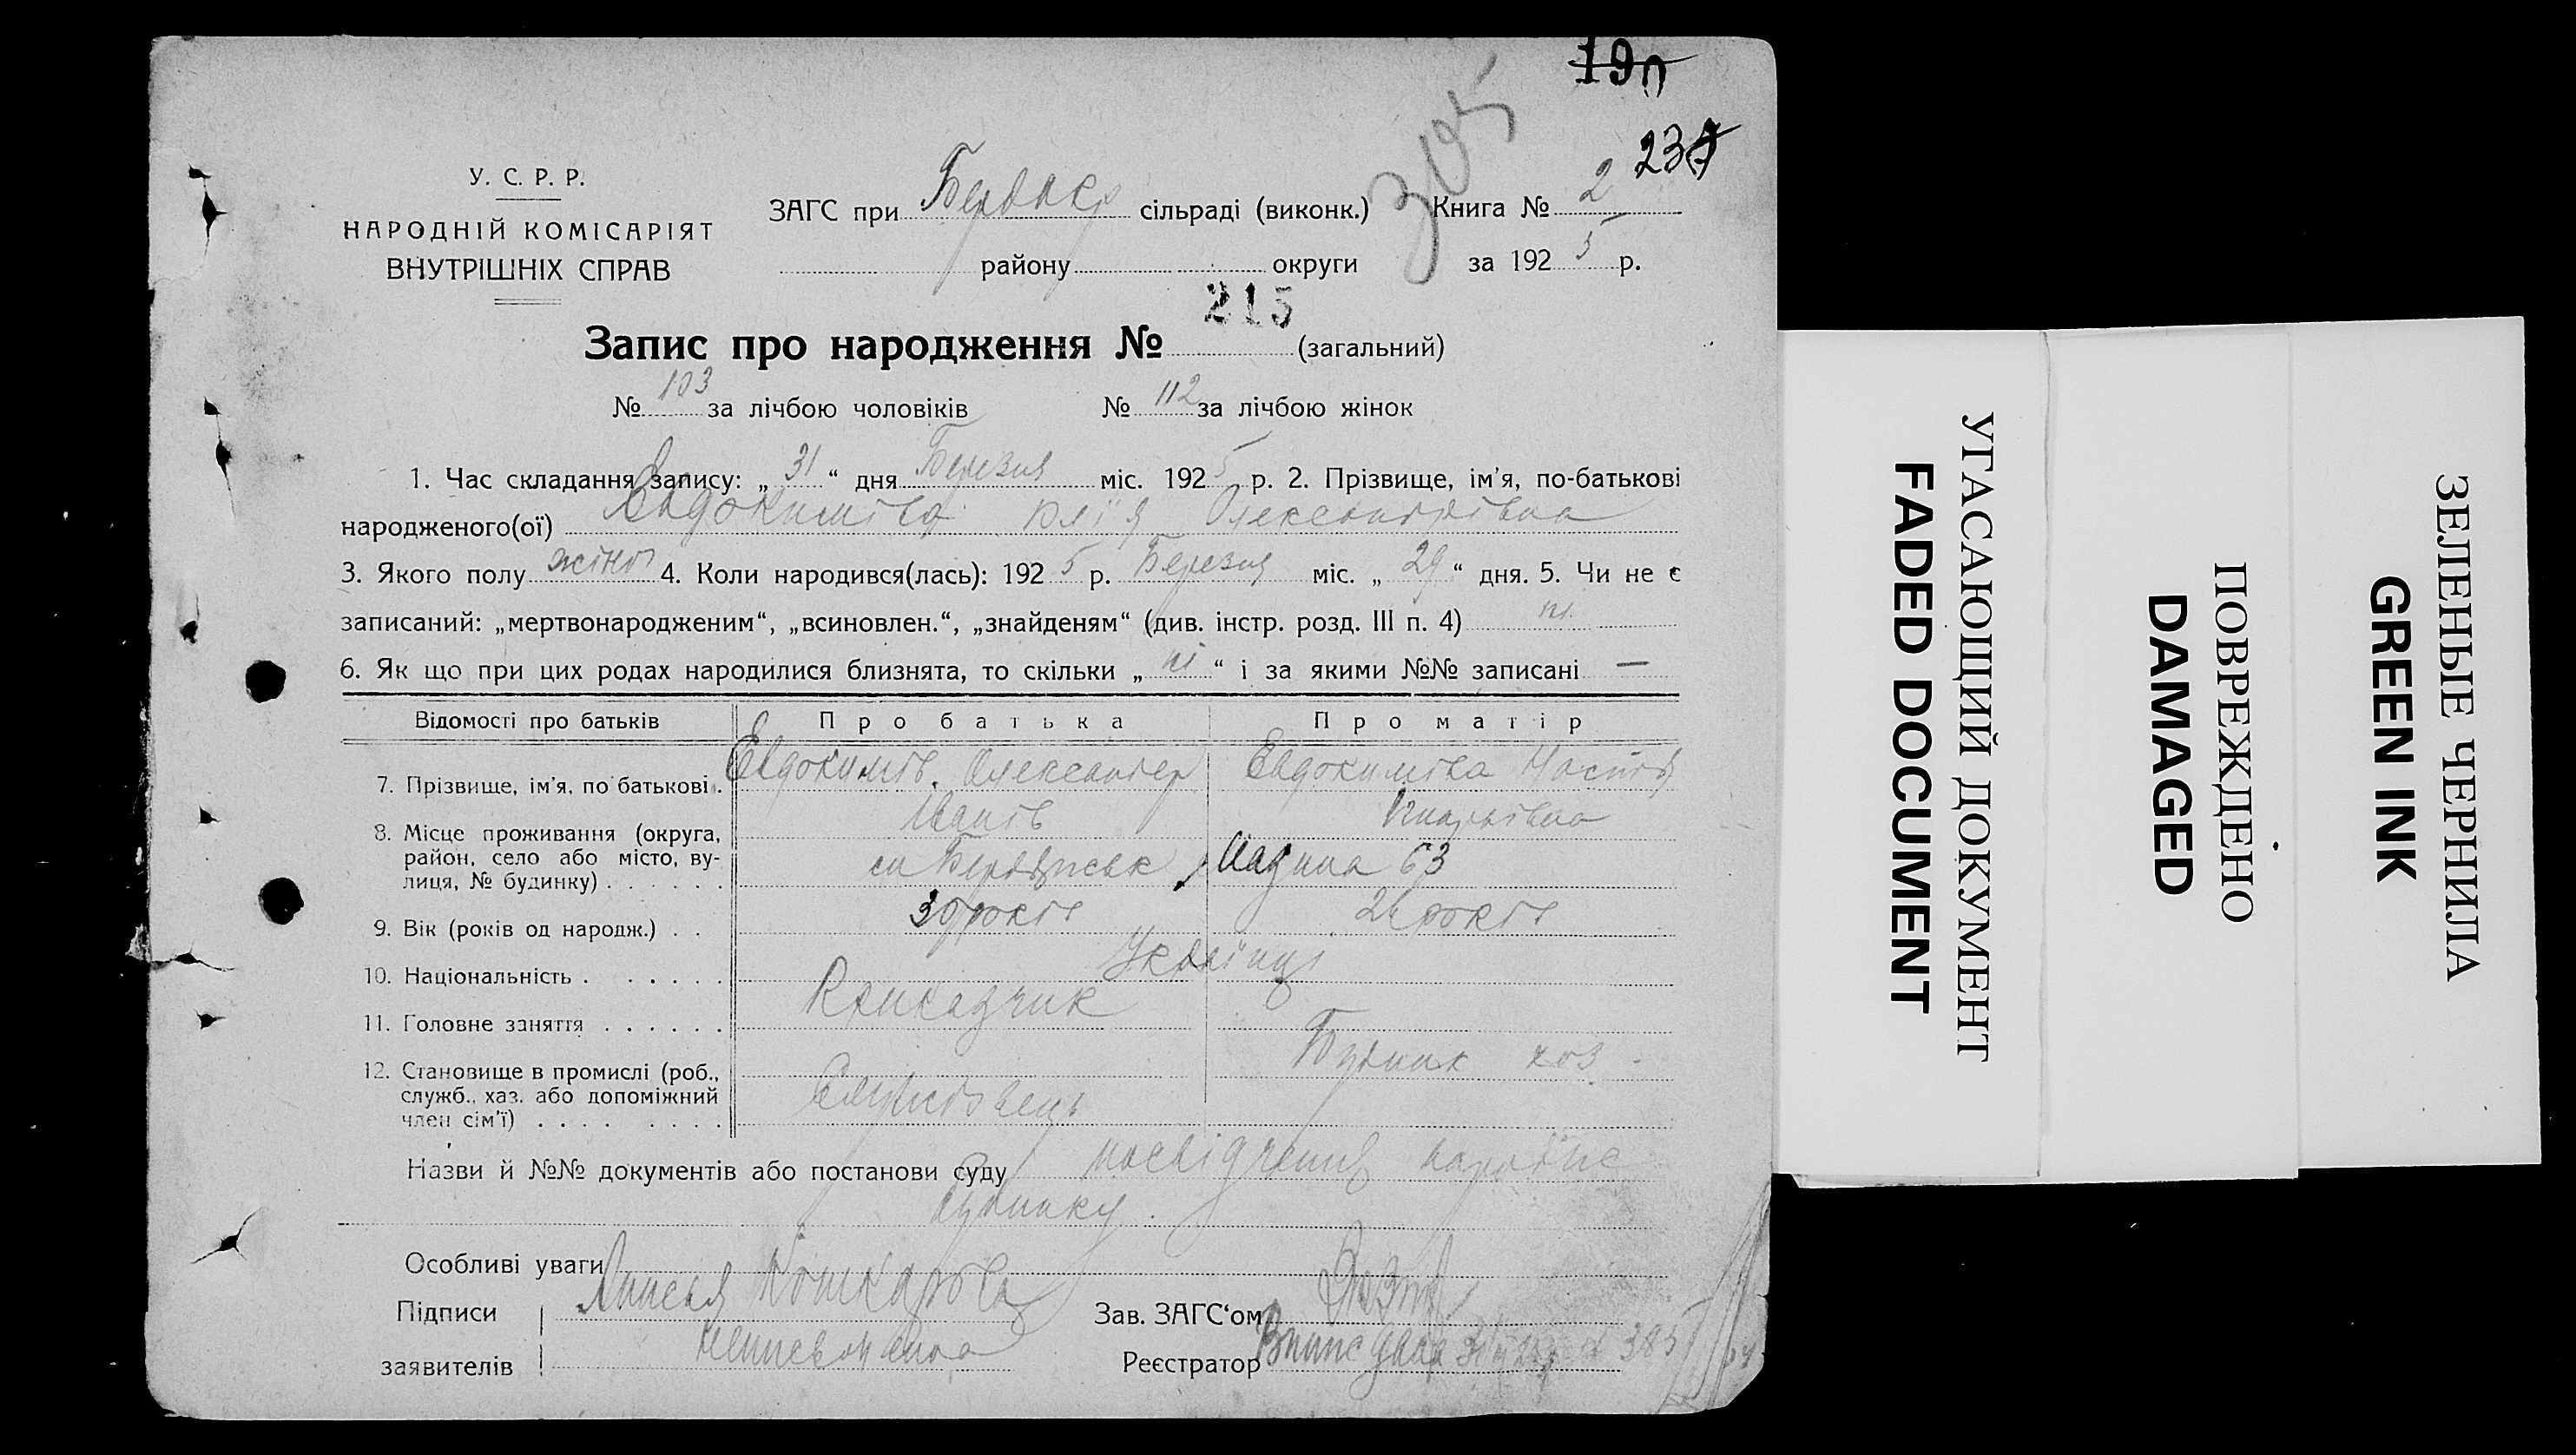 190
305
237
У. С. Р. Р.
НАРОДНІЙ КОМІСАРІЯТ
ВНУТРІШНІХ СПРАВ
ЗАГС при сільраді (виконк.) Книга № 2
району округи за 192 5 р.
215
Запис про народження № (загальний)
№ 103 за лічбою чоловіків № 112 за лічбою жінок
1. Час складання запису: „ 31 “ дня Березня міс. 192 5 р. 2. Прізвище, ім’я, по-батькові
народженого(ої) Евдокиміва Юлія Олександрівна
3. Якого полу жіноч 4. Коли народився(лась): 192 5 р. Березня міс. „ 29 “ дня. 5. Чи не є
записаний: „мертвонародженим“, „всиновлен.“, „знайденям“ (див. інстр. розд. III п. 4) ні
6. Як що при цих родах народилися близнята, то скільки „ ні “ і за якими №№ записані —
Відомості про батьків Про батька Про матір
7. Прізвище, ім’я, по батькові . Евдокимів. Олександер Евдокиміва Настя
Іванів
8. Місце проживання (округа,
район, село або місто, ву-
лиця, № будинку) . . . . . . 63
9. Вік (років од народж.) . . років років
10. Національність . . . . . . Українці
11. Головне заняття . . . . . .
12. Становище в промислі (роб.,
служб., хаз. або допоміжний
член сім’ї) . . . . . . . .
Назви й №№ документів або постанови суду посвідчення
будинку.
Особливі уваги
Підписи Зав. ЗАГС‘ом
заявителів Реєстратор 385
УГАСАЮЩИЙ ДОКУМЕНТ
FADED DOCUMENT
ПОВРЕЖДЕНО
DAMAGED
ЗЕЛЕНЫЕ ЧЕРНИЛА
GREEN INK